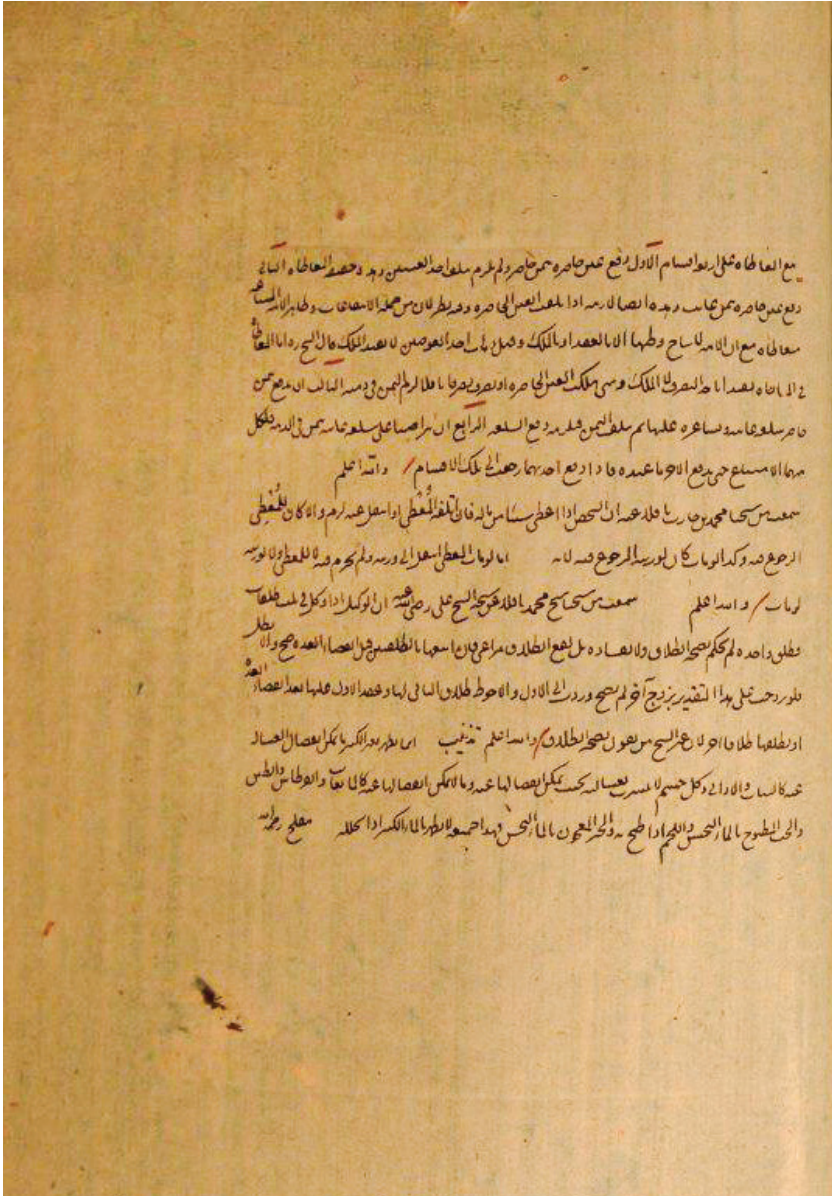 مع المعاطاة على اربع اقسام الاول دفع عين حاضره بثمن حاضر ولم يلزم بتلف احد العينين وهذه حقيقة المعاطاه الثاني
دفع عين حاضره بثمن غايب وهذه ايضا لازمه اذا تلفت العين الحاضره وفيه نظر لان من جملة الانتفاعات وطاهر الامه المبتاعه
معاطاه مع ان الامه لا تباح وطيها الا بالعقد او بالملك وقبل ذهاب احد العوضين لا يفيد الملك قال الشيخ ره اما المعاطاة
في الجاه يفيد اباحة التصرف لا الملك ومتى ملكت العين الحاضره او تصرف تصرفا ناقلا لزم الثمن في ذمته الثالث ان يدفع ثمن
حاضر سلعه غايبه ويساعره عليها ثم يتلف الثمن فيلزمه دفع السلعه الرابع ان يتراضيا على سلعه غايبه بثمن في الذمه فلكل
منهما الامتناع حتى يدفع الاخر ما عنده فاذا دفع احدهما رجعت الى تلك الاقسام والله اعلم
سمعت من شيخنا محمد بن حارث ناقلا عنه ان الشخص اذا اعطى شيئا من ماله فان اتلفه المُعْطَى او انتقل عنه لزم والا كان للمُعْطِي
الرجوع فيه وكذا لو مات كان لورثته الرجوع فيه لانه اما لو مات المعطى انتقل الى ورثته ولم يحرم فيه لا للمعطي ولا لورثته
لو مات والله اعلم سمعت من شيخنا شيخ محمد ناقلا عن شيخه الشيخ علي رضي الله عنه ان الوكيل اذا وكل في ثلث طلقات
فطلق واحده لم يحكم بصحة الطلاق ولا بفساده بل يقع الطلاق مراعى فان اتبعها بالطلقتين قبل انقضاء العده صح والا بطل
فلو زوجت على هذا التقدير بزوج آخر لم يصح وردت الى الاول والاحوط طلاق الثاني لها وعقد الاول عليها بعد انقضاء العدة
او يطلقها طلاقا اخر لان غير الشيخ من يقول بصحة الطلاق والله اعلم تذنيب انما يطهر بغير الكثير ما يمكن انفصال الغساله
عنه كالثياب والاواني وكل جسم لا يتشرب بغسالته بحيث يمكن انفصالها عنه وما لا يمكن انفصالها عنه كالمايعات والقرطاس والطين
والحب المطبوخ بالماء النجس واللحم اذا طبخ به والخبز المعجون بالماء النجس فهذا جميعه لا يطهر بالماء الكثير اذا تخلله مفلح رحمه الله